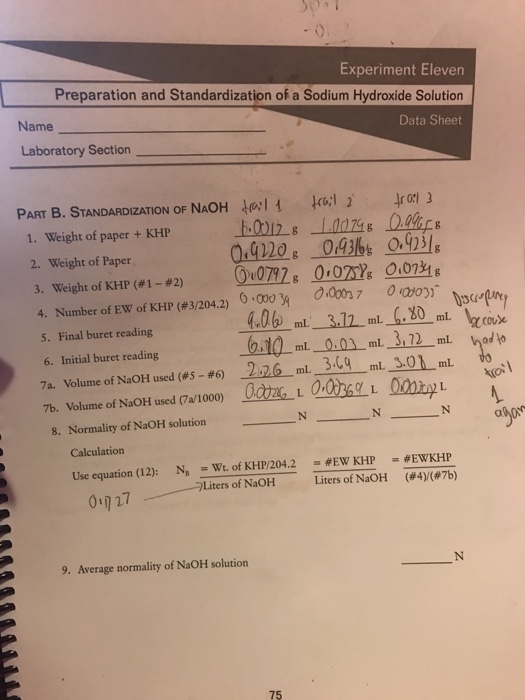 Experiment Eleven
Preparation and Standardization of a Sodium Hydroxide Solution
Name
Data Sheet
Laboratory Section
PART B. STANDARDIZATION OF NaOH trail 1 trail 2 trail 3
1. Weight of paper + KHP 1.0012 g 1.0074 g g
2. Weight of Paper 0.9220 g 0.9316 g 0.9231 g
3. Weight of KHP (#1 – #2) 0.0792 g 0.0758 g 0.0734 g
4. Number of EW of KHP (#3/204.2) 0.00039 0.00037
5. Final buret reading mL 3.72 mL 6.80 mL
6. Initial buret reading mL 0.03 mL 3.72 mL
7a. Volume of NaOH used (#5 – #6) 2.26 mL 3.69 mL 3.08 mL
7b. Volume of NaOH used (7a/1000) L 0.00369 L L
8. Normality of NaOH solution N N N
Discrepancy
because
had to
do
trail
1
again
Calculation
Use equation (12): Nb = Wt. of KHP/204.2 / Liters of NaOH = #EW KHP / Liters of NaOH = #EWKHP / (#4)/(#7b)
9. Average normality of NaOH solution N
75